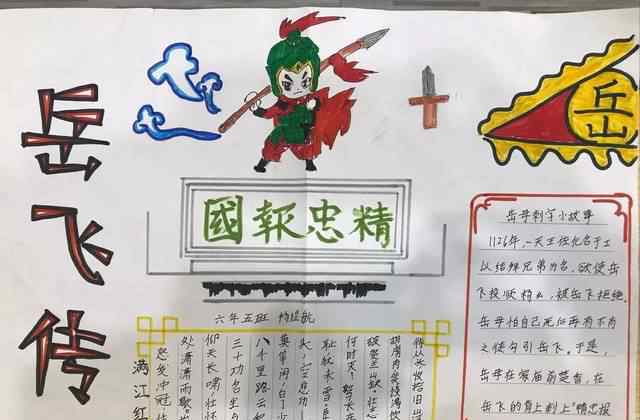 岳飞传
岳
國報忠精
六年五班
岳母刺字小故事
1126年,一天王佐化名于工
以结拜兄弟为名,欲使岳
飞投顺杨幺,被岳飞拒绝.
岳母怕自己死后再有不肖
之徒勾引岳飞。于是,
岳母在家庙前焚香,在
岳飞的背上刺上"精忠报
满江红
怒发冲冠,
处潇潇雨歇
仰天长啸,壮怀
三十功名尘
八千里路云和
莫等闲,白了少
头,空悲切
耻,犹未雪.
何时灭!驾长
破贺兰山缺.壮志
胡虏肉笑谈渴饮
待从头收拾旧